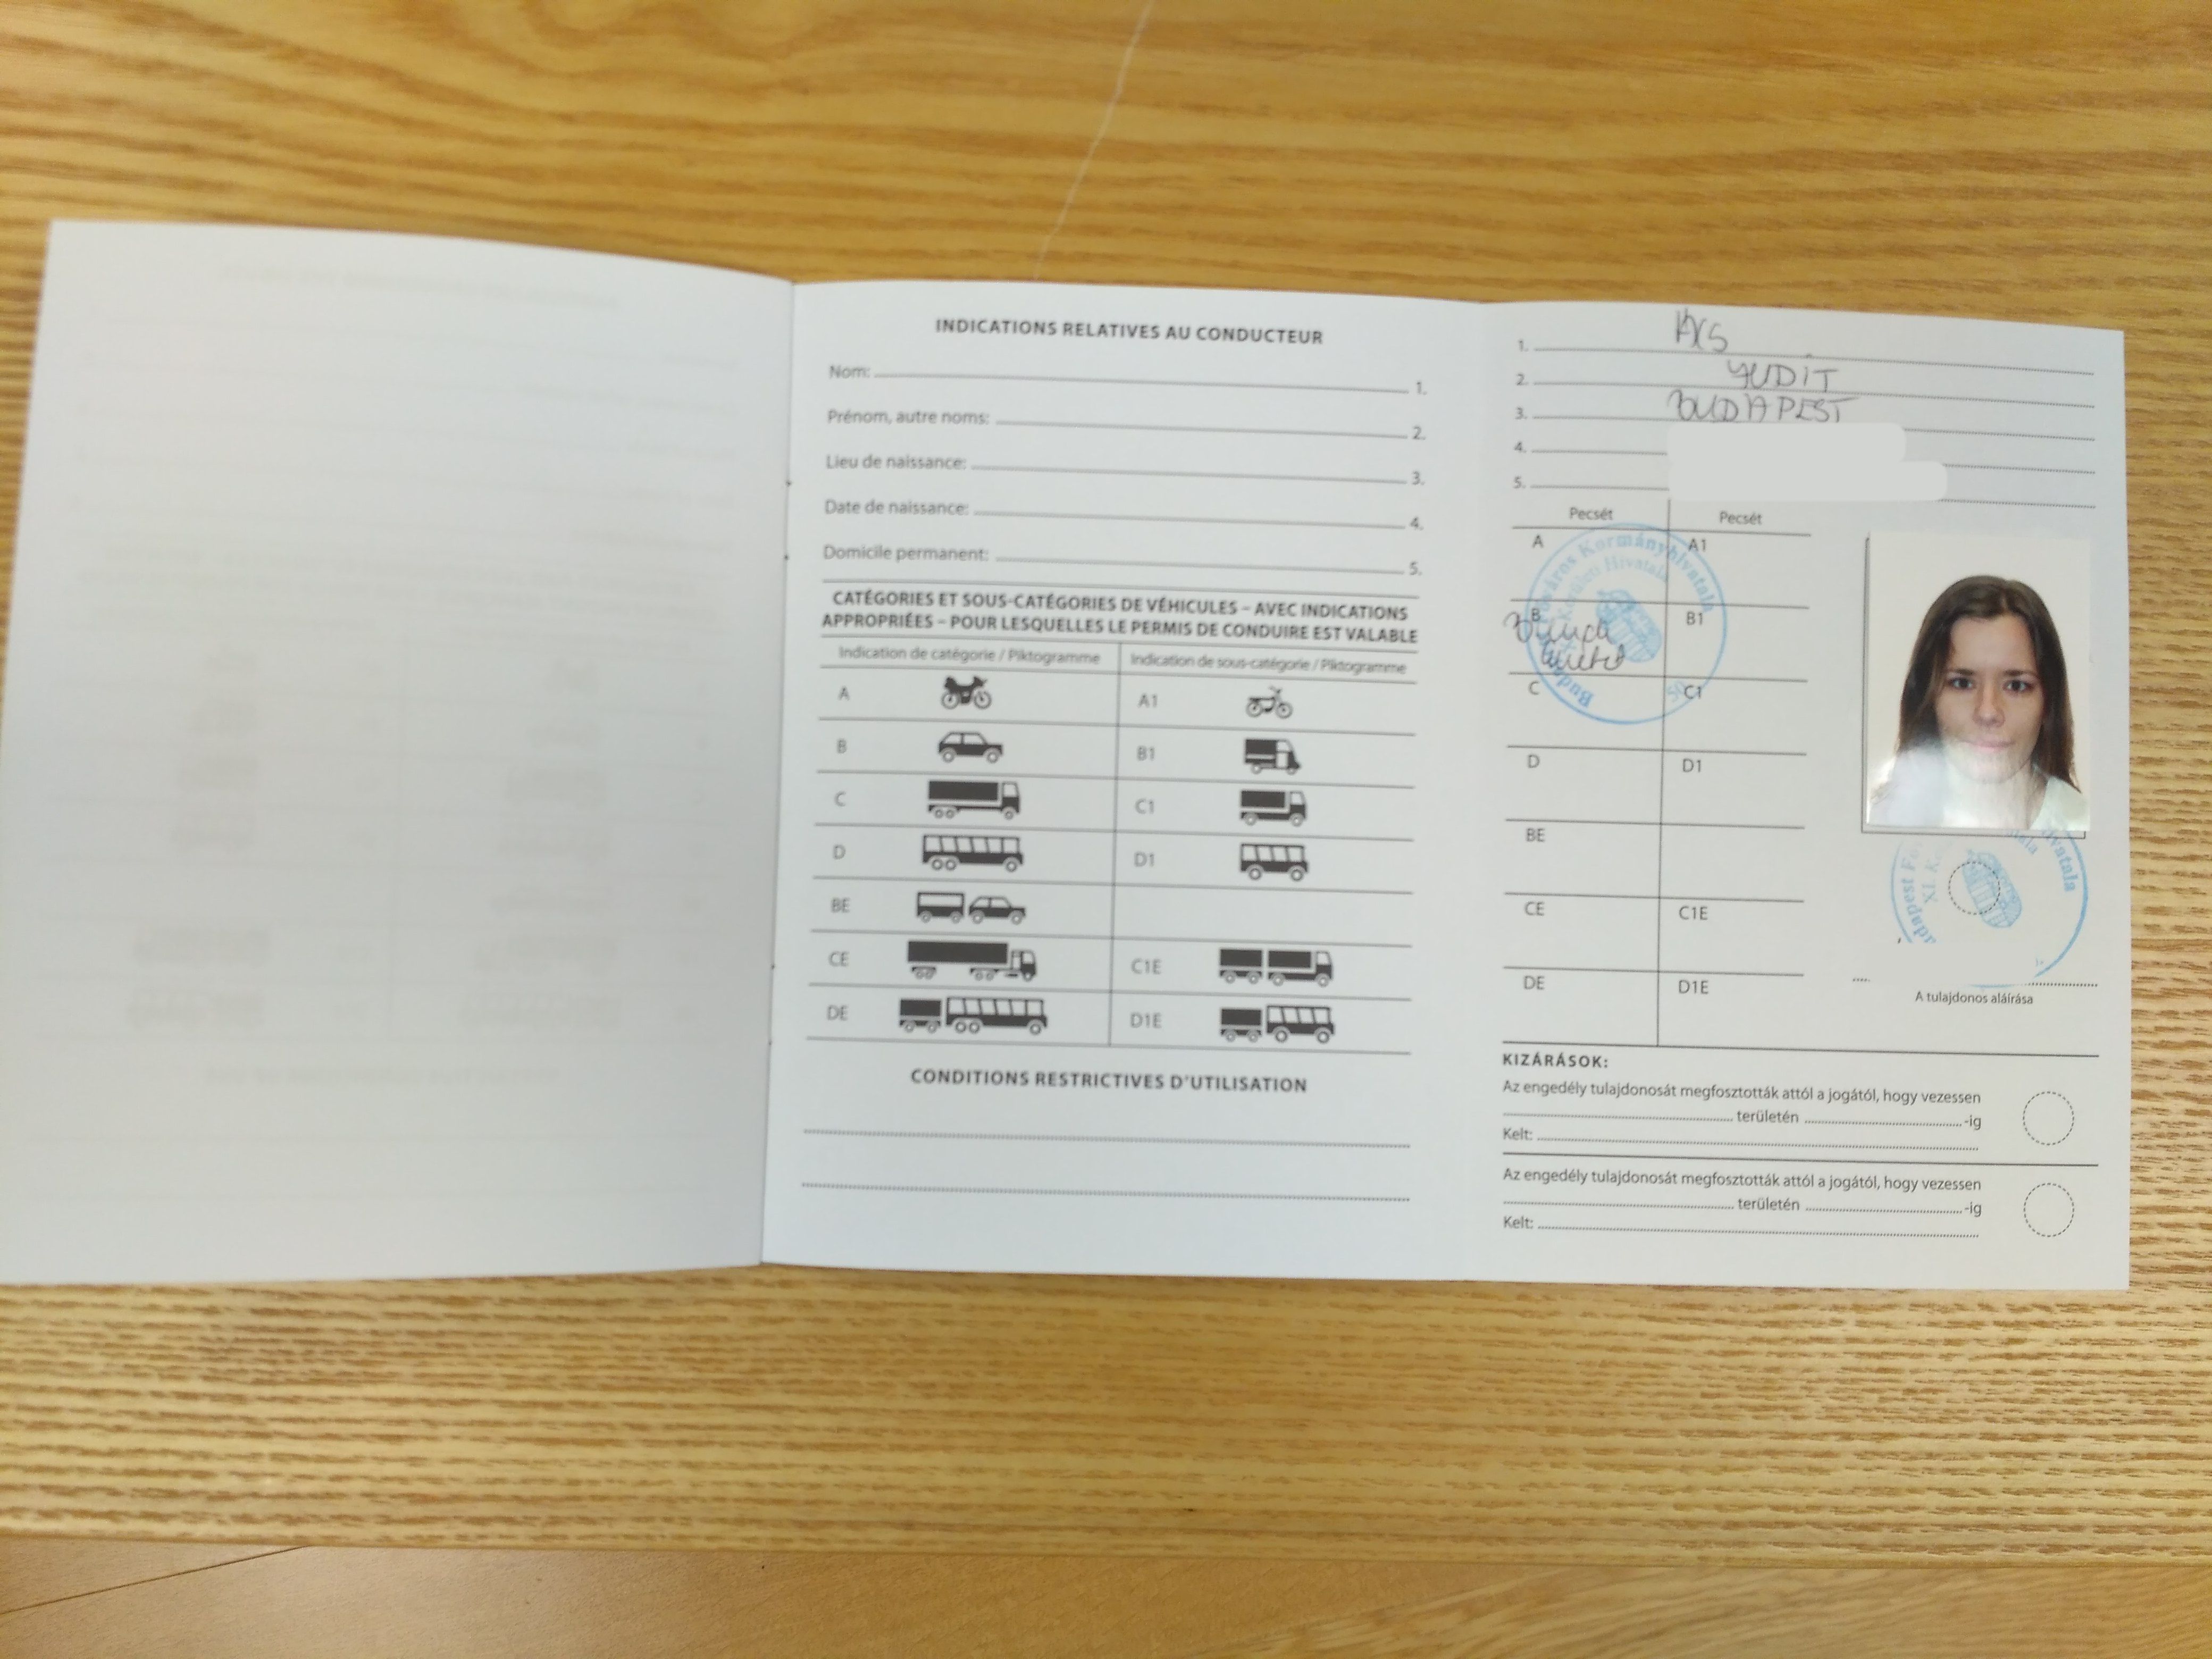 INDICATIONS RELATIVES AU CONDUCTEUR
Nom: 1.
Prénom, autre noms: 2.
Lieu de naissance: 3.
Date de naissance: 4.
Domicile permanent: 5.
CATÉGORIES ET SOUS-CATÉGORIES DE VÉHICULES – AVEC INDICATIONS
APPROPRIÉES – POUR LESQUELLES LE PERMIS DE CONDUIRE EST VALABLE
Indication de catégorie / Piktogramme Indication de sous-catégorie / Piktogramme
A A1
B B1
C C1
D D1
BE
CE C1E
DE D1E
CONDITIONS RESTRICTIVES D'UTILISATION
1. KIS
2. JUDIT
3. BUDAPEST
4.
5.
Pecsét Pecsét
A A1
B B1
C C1
D D1
BE
CE C1E
DE D1E
Főváros Kormányhivatala
Kerületi Hivatala
Budapest
XI.
A tulajdonos aláírása
KIZÁRÁSOK:
Az engedély tulajdonosát megfosztották attól a jogától, hogy vezessen
területén -ig
Kelt:
Az engedély tulajdonosát megfosztották attól a jogától, hogy vezessen
területén -ig
Kelt: